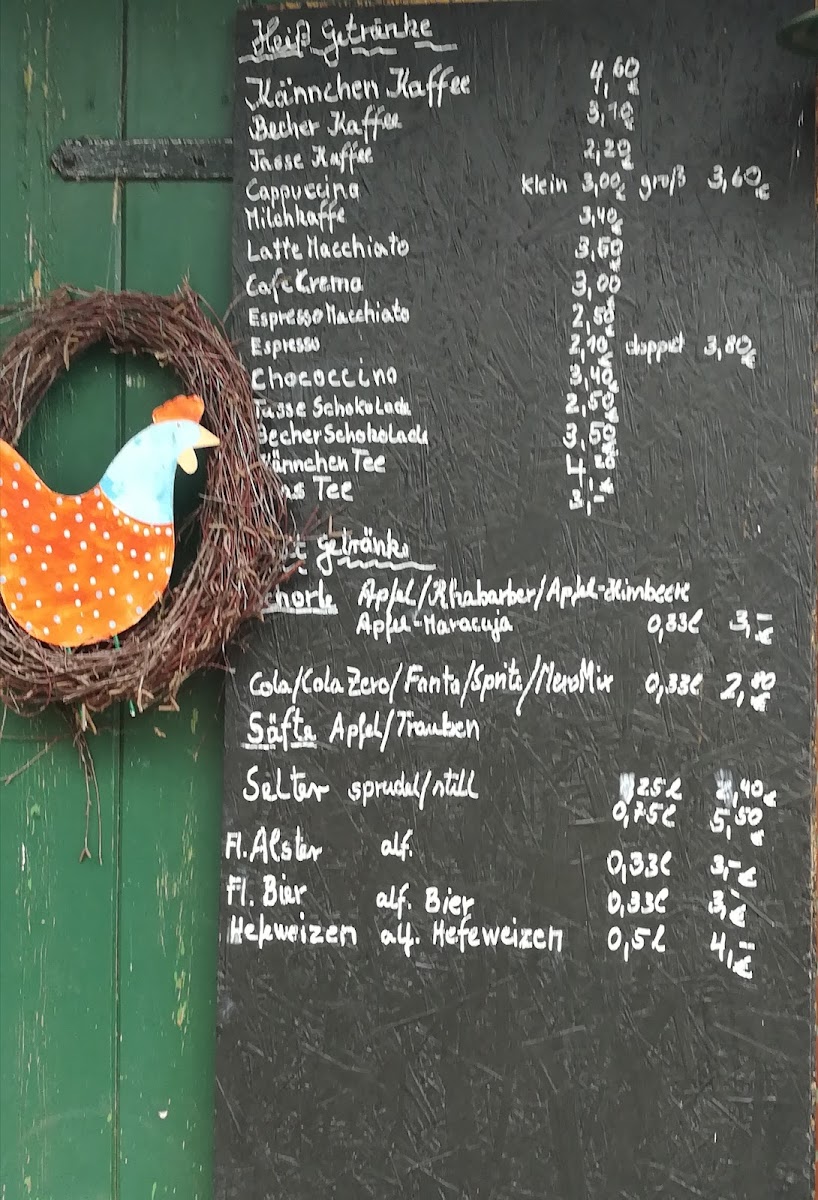 Heiß Getränke
Kännchen Kaffee 4,60€
Becher Kaffee 3,10€
Tasse Kaffee 2,20€
Cappuccino klein 3,00€ groß 3,60€
Milchkaffe 3,40€
Latte Macchiato 3,60€
Cafe Crema 3,00
Espresso Macchiato 2,50€
Espresso 2,10€ doppelt 3,80€
Chococcino 3,40€
Tasse Schokolade 2,50€
Becher Schokolade 3,50€
ännchen Tee
as Tee 3,-€
Getränke
chorle Apfel/Rhabarber/Apfel-Himbeere
Apfel-Maracuja 0,33l 3,-€
Cola/Cola Zero/Fanta/Sprite/MezzoMix 0,33l 2,80€
Säfte Apfel/Trauben
Selter sprudel/still 25l ,40€
0,75l 5,50€
Fl. Alster alf. 0,33l 3,-€
Fl. Bier alf. Bier 0,33l 3,-€
Hefeweizen alf. Hefeweizen 0,5l 4,-€